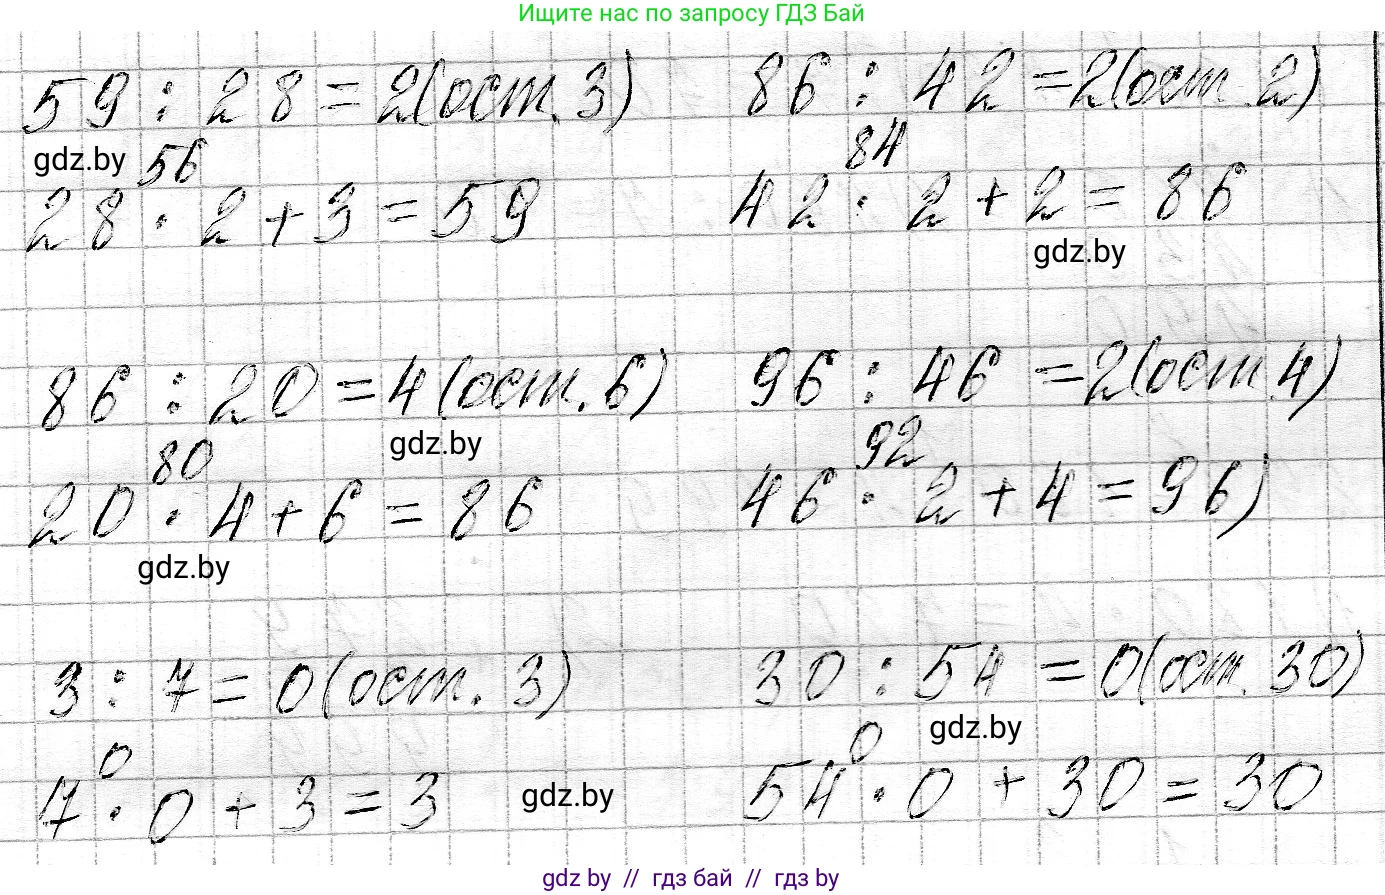 Ищите нас по запросу ГДЗ Бай
59 : 28 = 2(ост. 3)
86 : 42 = 2(ост. 2)
gdz.by
56
84
28 · 2 + 3 = 59
42 · 2 + 2 = 86
gdz.by
86 : 20 = 4(ост. 6)
96 : 46 = 2(ост. 4)
gdz.by
80
92
20 · 4 + 6 = 86
46 · 2 + 4 = 96)
gdz.by
3 : 7 = 0(ост. 3)
30 : 54 = 0(ост. 30)
gdz.by
0
0
7 · 0 + 3 = 3
54 · 0 + 30 = 30
gdz.by
gdz by // гдз бай // гдз by